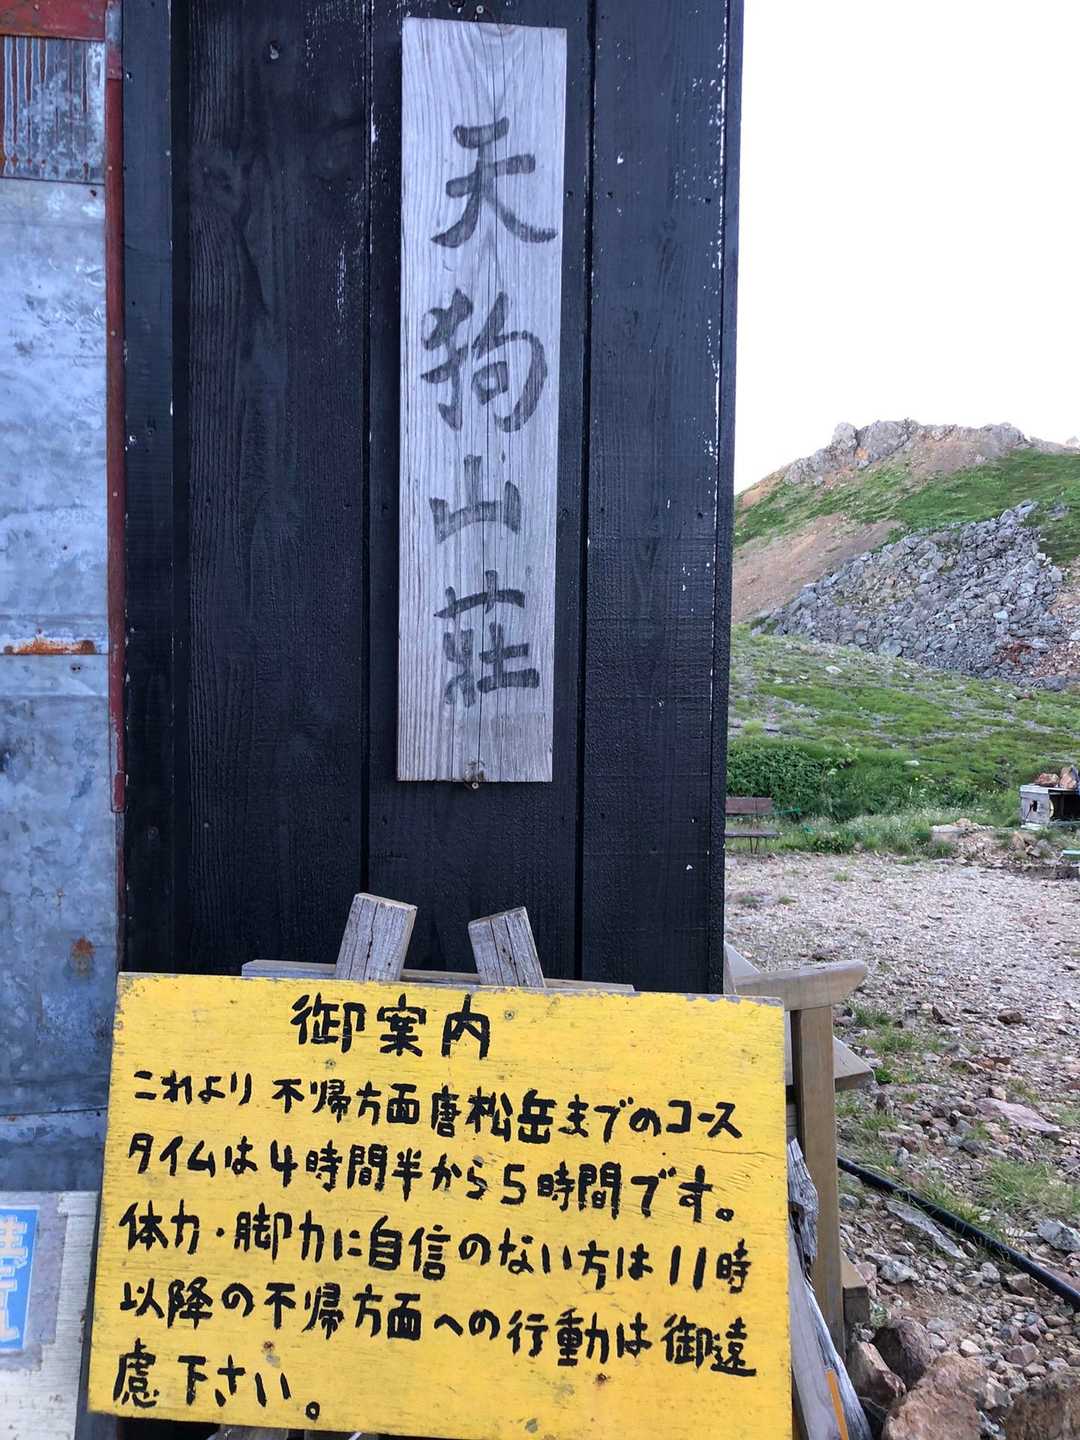 天狗山荘
御案内
これより不帰方面唐松岳までのコース
タイムは4時間半から5時間です。
体力・脚力に自信のない方は11時
以降の不帰方面への行動は御遠
慮下さい。